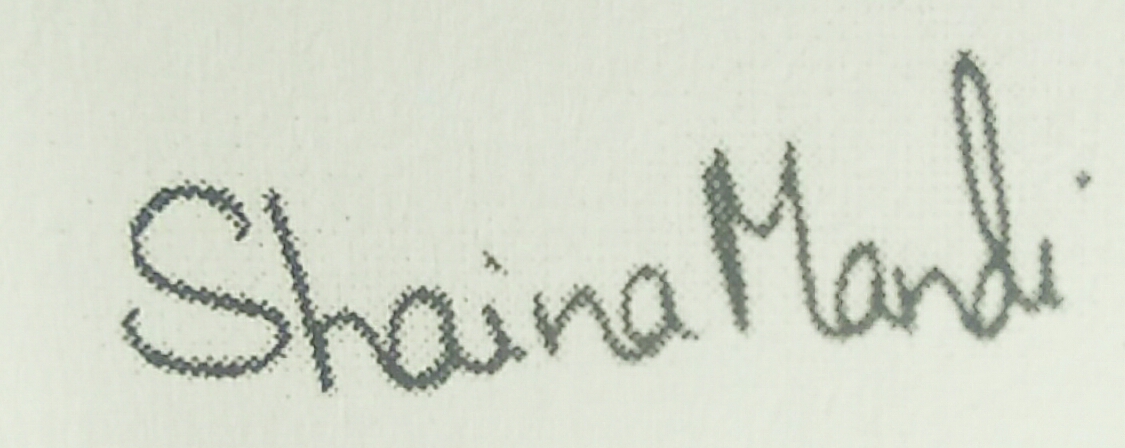 Shaina Mandi